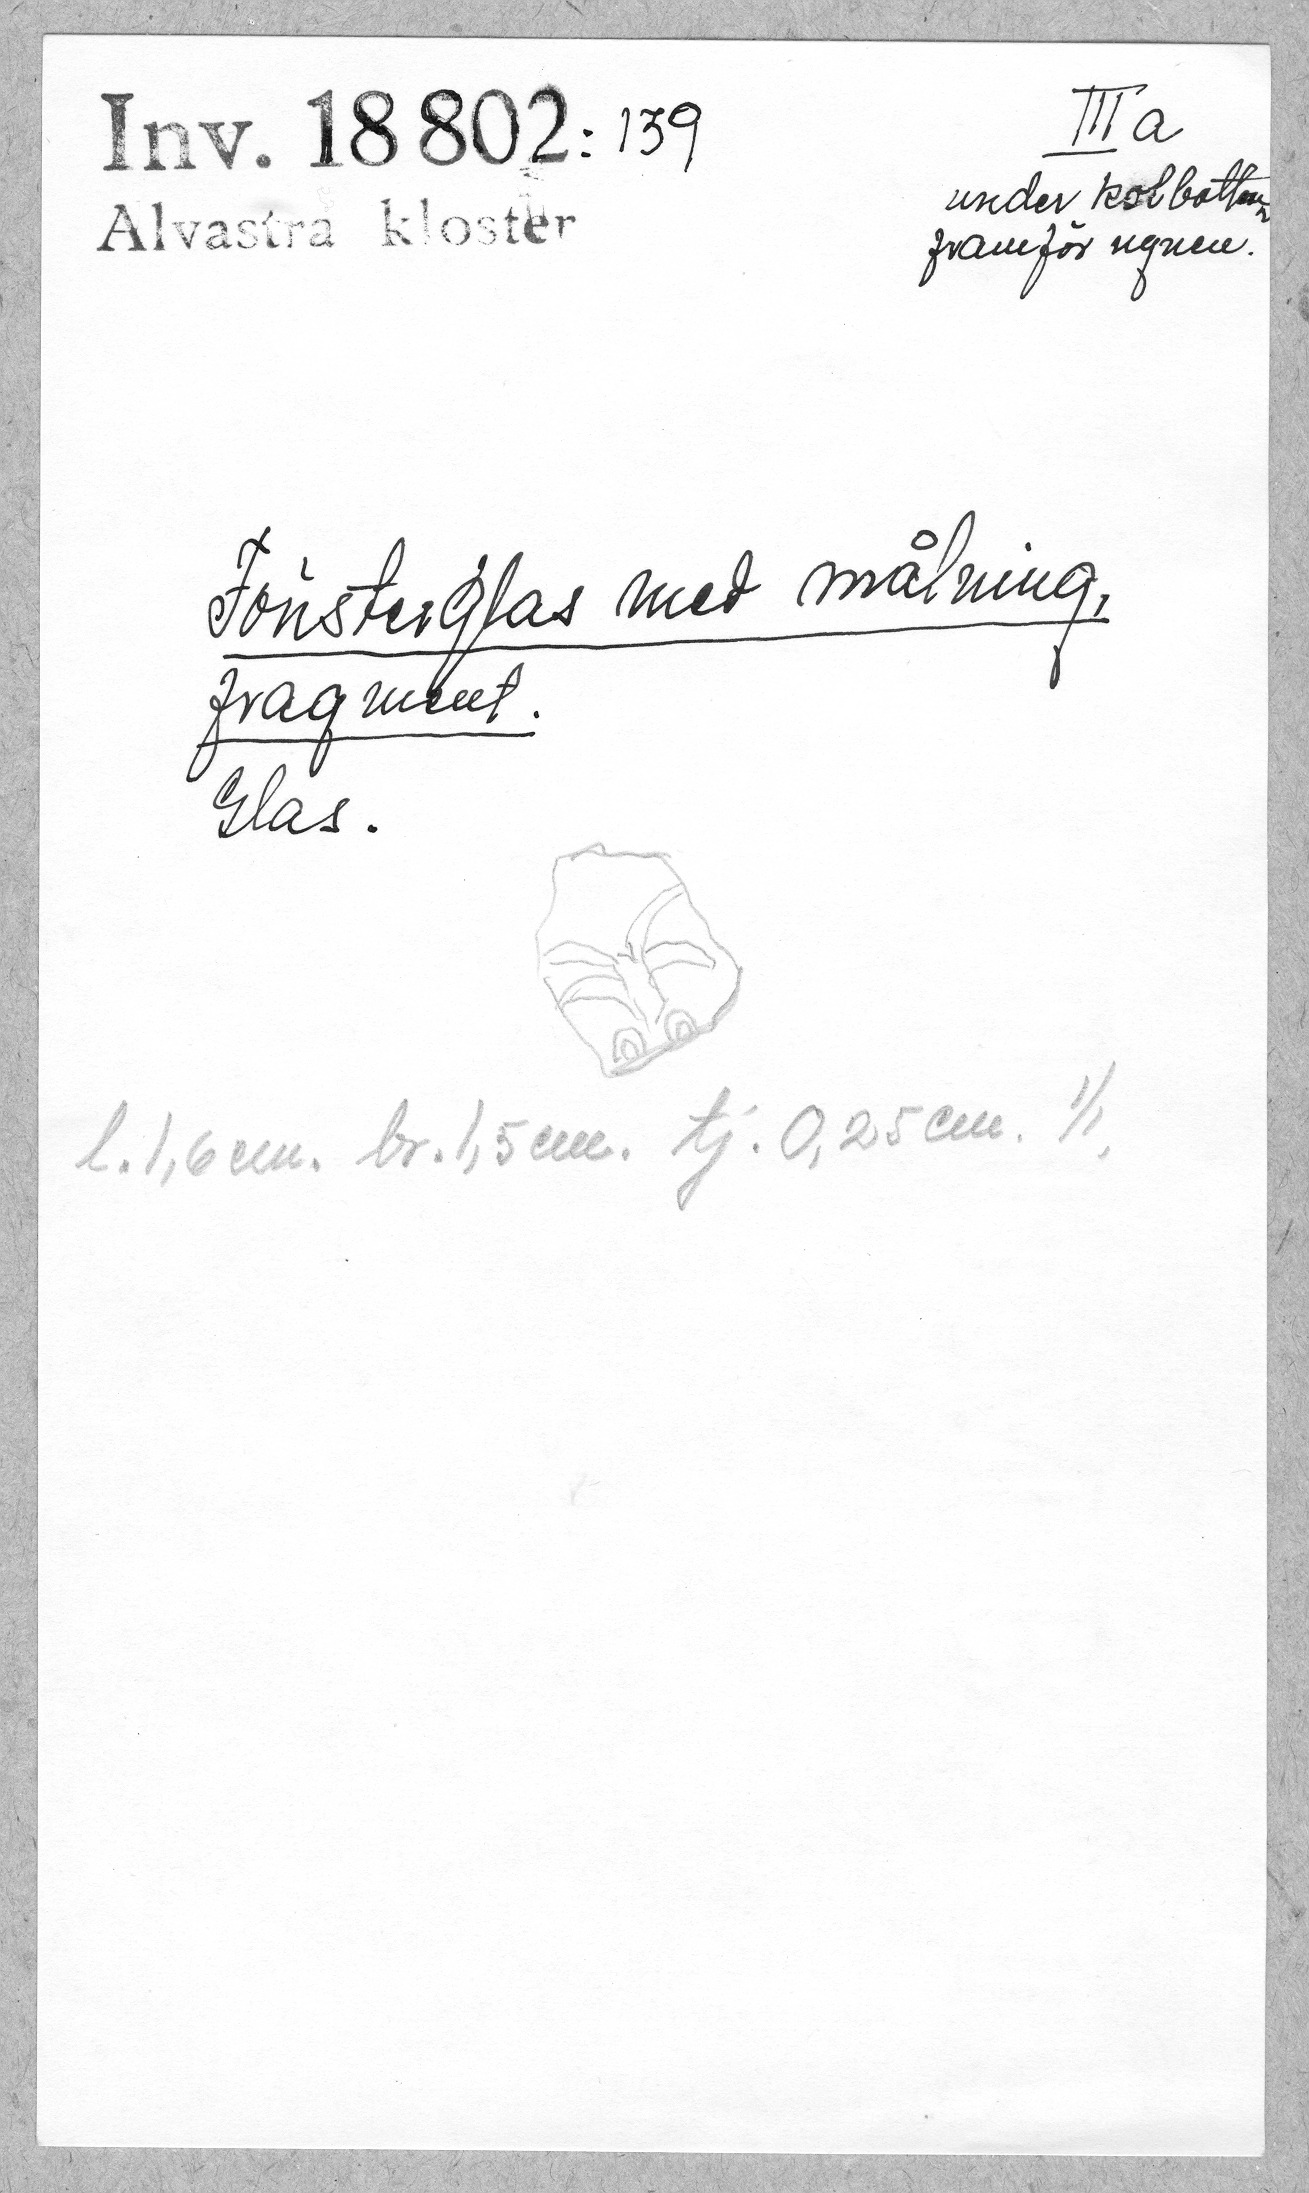 Inv. 18 802: 139
Alvastra kloster
III a
under kolbotten
framför ugnen.
Fönsterglas med målning,
fragment.
Glas.
l. 1,6 cm. br. 1,5 cm. tj. 0,25 cm. 1/1.